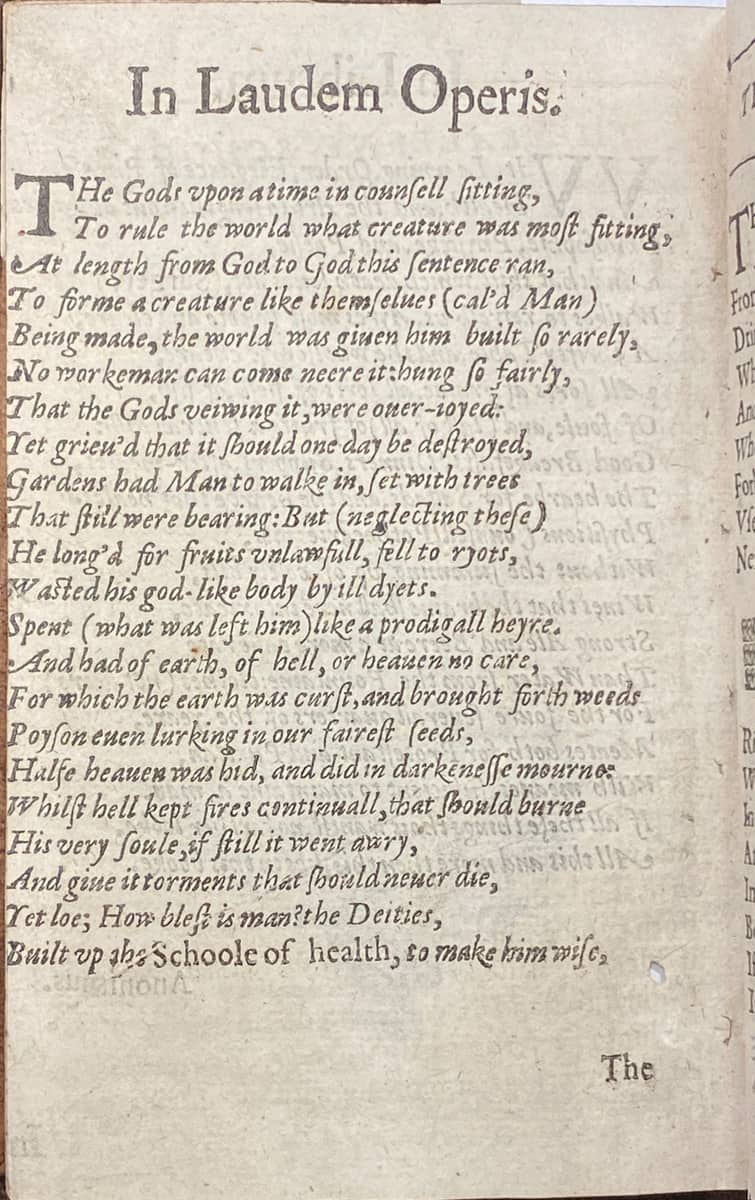 In Laudem Operis.
THe Gods vpon a time in counſell ſitting,
To rule the world what creature was moſt fitting,
At length from God to God this ſentence ran,
To forme a creature like themſelues (cal'd Man)
Being made, the world was giuen him built ſo rarely,
No workeman can come neere it: hung ſo fairly,
That the Gods veiwing it, were ouer-ioyed:
Yet grieu'd that it ſhould one day be deſtroyed,
Gardens had Man to walke in, ſet with trees
That ſtill were bearing: But (neglecting theſe)
He long'd for fruits vnlawfull, fell to ryots,
Waſted his god-like body by ill dyets.
Spent (what was left him) like a prodigall heyre.
And had of earth, of hell, or heauen no care,
For which the earth was curſt, and brought forth weeds
Poyſon euen lurking in our faireſt ſeeds,
Halfe heauen was hid, and did in darkeneſſe mourne:
Whilſt hell kept fires continuall, that ſhould burne
His very ſoule, if ſtill it went awry,
And giue it torments that ſhould neuer die,
Yet loe; How bleſt is man? the Deities,
Built vp the Schoole of health, to make him wiſe,
The